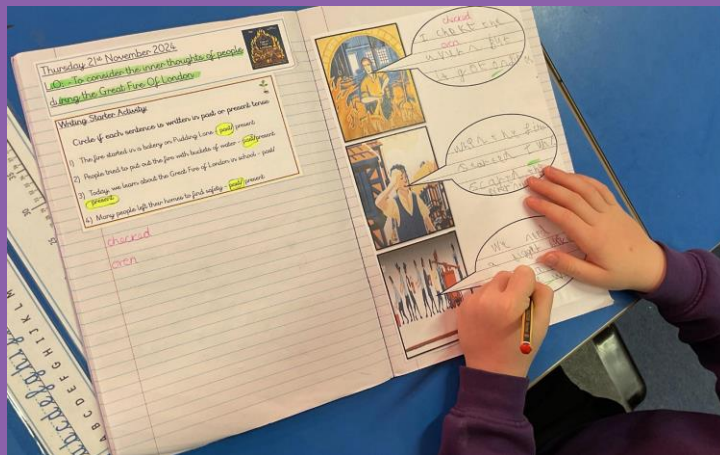 Thursday 21st November 2024
L.O: - To consider the inner thoughts of people
during the Great Fire Of London.
Writing Starter Activity:
Circle if each sentence is written in past or present tense
1) The fire started in a bakery on Pudding Lane - past/ present
2) People tried to put out the fire with buckets of water - past/present
3) Today, we learn about the Great Fire of London in school - past/
present
4) Many people left their homes to find safety - past/ present
checked
oven
checked
I chekt the
oven
but
it got
when the
started I
We
a
A B C D E F G H I J K L M
a b c d e f g h i j